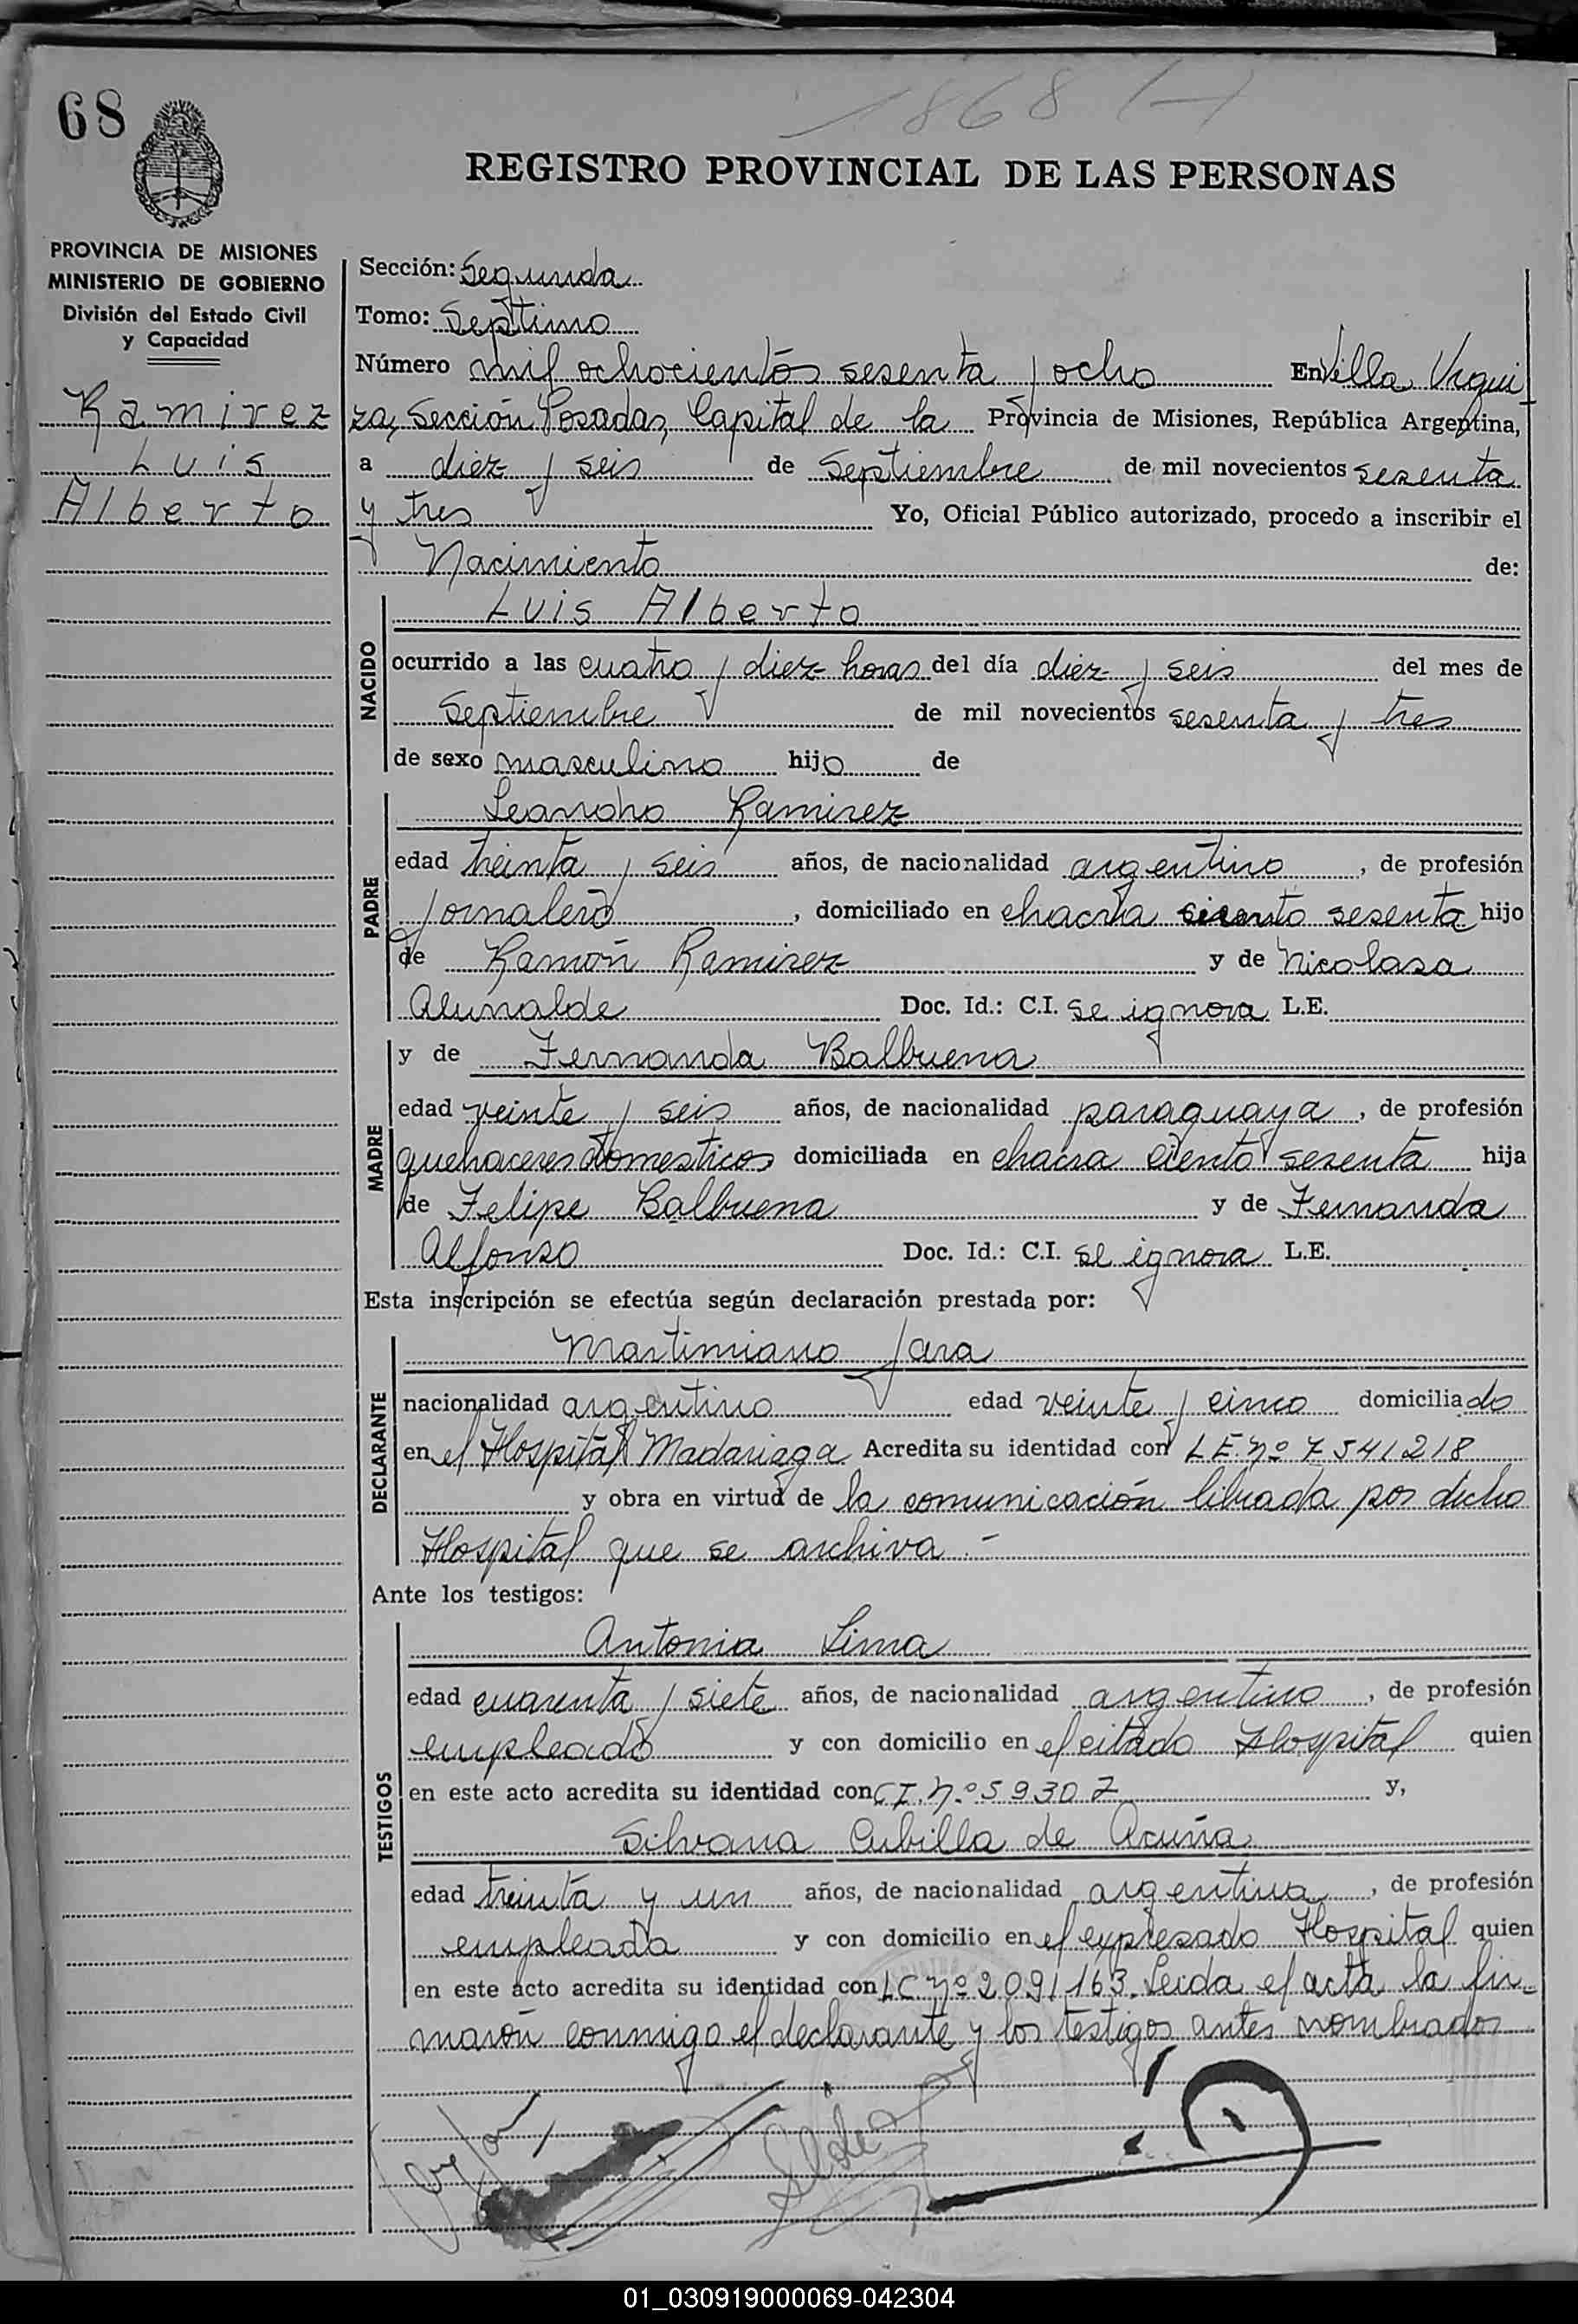 68
1868 (-)
REGISTRO PROVINCIAL DE LAS PERSONAS
PROVINCIA DE MISIONES
MINISTERIO DE GOBIERNO
División del Estado Civil
y Capacidad
Ramirez
Luis
Alberto
Sección: Segunda
Tomo: Septimo
Número mil ochocientos sesenta y ocho En Villa Urqui
za, Sección Posadas, Capital de la Provincia de Misiones, República Argentina,
a diez y seis de Septiembre de mil novecientos sesenta
y tres Yo, Oficial Público autorizado, procedo a inscribir el
Nacimiento de:
NACIDO
Luis Alberto
ocurrido a las cuatro y diez horas del día diez y seis del mes de
Septiembre de mil novecientos sesenta y tres
de sexo masculino hijo de
PADRE
Leandro Ramirez
edad treinta y seis años, de nacionalidad argentino, de profesión
jornalero, domiciliado en chacra ciento sesenta hijo
de Ramón Ramirez y de Nicolasa
Doc. Id.: C.I. se ignora L.E.
MADRE
y de Fernanda Balbuena
edad veinte y seis años, de nacionalidad paraguaya, de profesión
quehaceres domesticos domiciliada en chacra ciento sesenta hija
de Felipe Balbuena y de Fernanda
Alfonso Doc. Id.: C.I. se ignora L.E.
Esta inscripción se efectúa según declaración prestada por:
DECLARANTE
Martimiano Jara
nacionalidad argentino edad veinte y cinco domiciliado
en el Hospital Madariaga Acredita su identidad con L.E. nº 7541218
y obra en virtud de la comunicación librada por dicho
Hospital que se archiva.-
Ante los testigos:
TESTIGOS
Antonia Lima
edad cuarenta y siete años, de nacionalidad argentino, de profesión
empleado y con domicilio en el citado Hospital quien
en este acto acredita su identidad con C.I. nº 59307 y,
Silvana Cubilla de Acuña
edad treinta y un años, de nacionalidad argentina, de profesión
empleada y con domicilio en el expresado Hospital quien
en este acto acredita su identidad con LC nº 2091163. Leida el acta la fir-
maron conmigo el declarante y los testigos antes nombrados
01_030919000069-042304